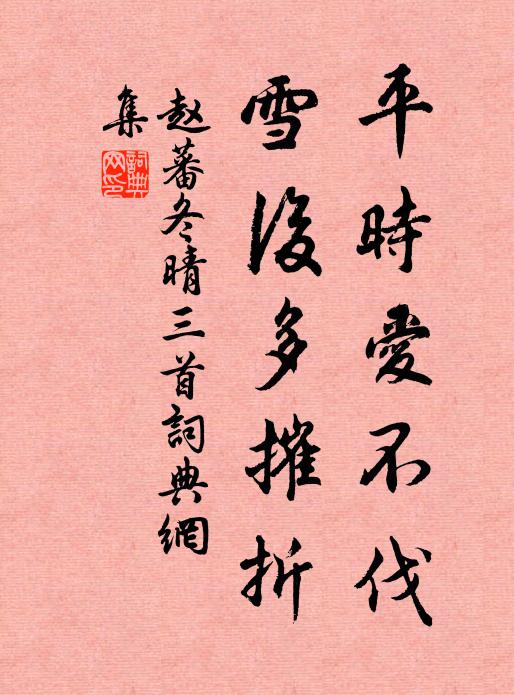 平時愛不伐
雪後多摧折
赵蕃冬晴三首詞典網
集
詞典网印